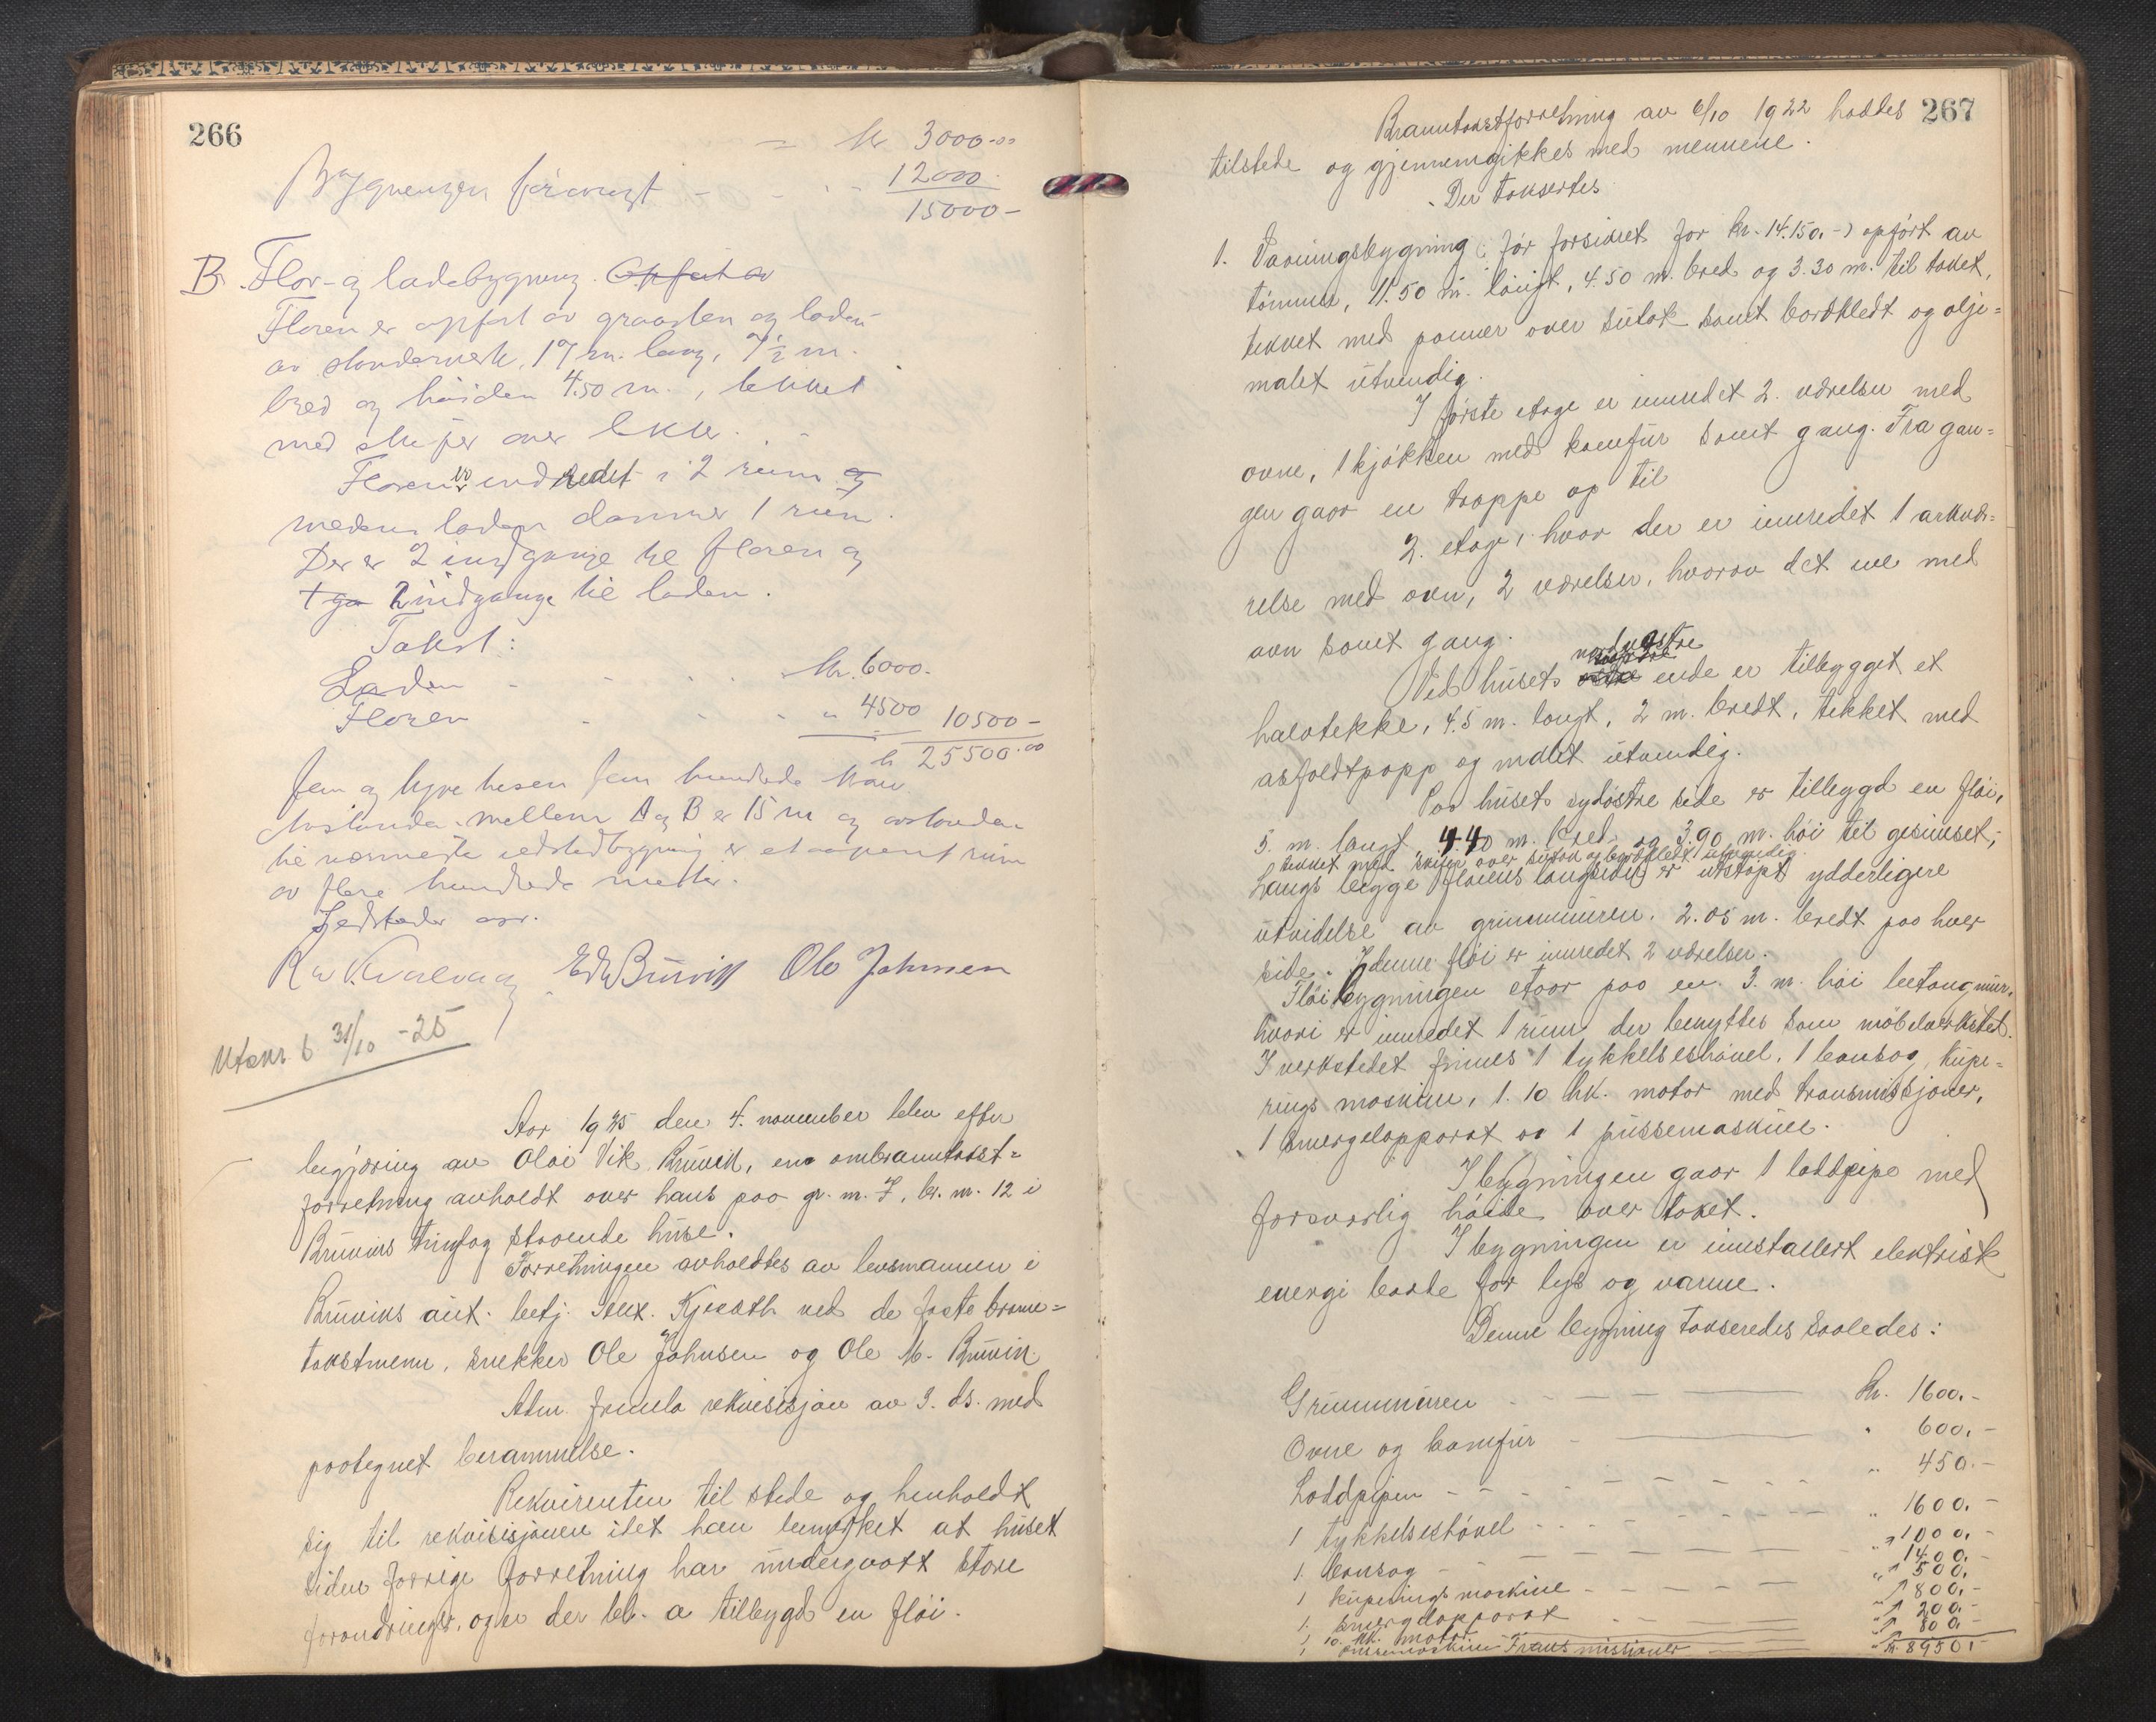 266
kr 3000.00
Bygningen forøvrigt - - - 12000.
15000-
B. Flor- og ladebygning. Opført av
Floren er opført av graasten og laden
av stenderverk, 17 m. lang, 7½ m.
bred og høiden 4.50 m., tekket
med skifer over lekter.
Floren er indredet i 2 rum og
medens laden danner 1 rum.
Der er 2 indgange til floren og
1 ga 2 indgange til laden.
Takst:
Laden - - - - kr. 6000.-
Floren - - - - " 4500 10500-
kr 25500.00
Fem og tyve tusen fem hundrede kron
Avstanden mellem A og B er 15 m og avstanden
til nærmeste ildstedbygning er et aapent rum
av flere hundrede metter.
Ildsteder osv.
R W. Kvalevaag Edv Bruvik Ole Johnsen
Utskr. b 31/10 -25
Aar 1935 den 4. november blev efter
begjæring av Olai Vik, Bruvik, en ombranntakst=
forretning avholdt over hans paa gr. nr. 7, br. nr. 12 i
Bruviks tinglag staaende huse.
Forretningen avholdtes av lensmannen i
Bruviks aut. betj. Alex. Kjosath ved de faste brann=
takstmenn, snekker Ole Johnsen og Ole M. Bruvik.
Adm. fremla rekvisisjon av 3. ds. med
paategnet berammelse.
Rekvirenten til stede og henholdt
sig til rekvisisjonen idet han bemerket at huset
siden forrige forretning har undergaatt store
forandringer, og er der bl. a tilbygd en fløi.
267
Branntakstforretning av 6/10 1922 haddes
tilstede og gjennemgikkes med mennene.
Der taksertes
1. Vaaningsbygning (før forsikret for kr. 14.150.-) opført av
tømmer, 11.50 m. langt, 4.50 m. bred og 3.30 m. til taket,
tekket med panner over sutak samt bordkledt og olje=
malet utvendig.
I første etage er innredet 2. værelser med
ovne, 1 kjøkken med komfur samt gang. Fra gan=
gen gaar en trappe op til
2. etage, hvor der er innredet 1 arkvæ=
relse med ovn, 2 værelser, hvorav det ene med
ovn samt gang.
nordvestre
Ved husets ende er tilbygget et
halvtekke, 4.5 m. langt, 2 m. bredt, tekket med
asfaldtpapp og malet utvendig.
Paa husets sydøstre side er tilbygd en fløi,
5. m. langt, 4.40 m. bred og 3.90 m. høi til gesimset,-
tekket med skifer over sutak og bordkledt utvendig.
Langs begge fløiens langsider er utstøpt ydderligere
utvidelse av grunnmuren, 2.05 m. bredt paa hver
side. I denne fløi er innredet 2 værelser.
Fløibygningen staar paa en 3. m. høi betongmur,
hvori er innredet 1 rum der benyttes som møbelverksted.
I verkstedet finnes 1 tykkelseshøvel, 1 bansag, kupe=
rings maskine, 1. 10 hk. motor med transmissjoner,
1 smergelapparat og 1 pussemaskine.
I bygningen gaar 1 loddpipe med
forsvarlig høide over taket.
I bygningen er innstallert elektrisk
energi baade for lys og varme.
Denne bygning takseredes saaledes:
Grunnmuren - - - kr. 1600.-
Ovne og komfur - " 600.-
Loddpipen - - - " 450.-
1 tykkelseshøvel - - - " 1600.-
1. bansag - - - " 1000.-
1 kuperings maskine - - - " 1400.-
1. smergelapparat - - - " 500.-
1 10. hk. motor " 800.-
1 pussemaskine " 200.-
Transmissjoner " 800.-
kr. 8950.-